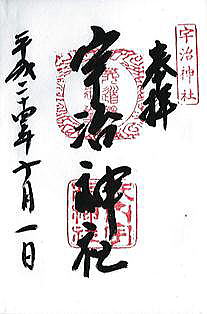 宇治神社
奉拝
宇治神社
平成二十四年十月一日